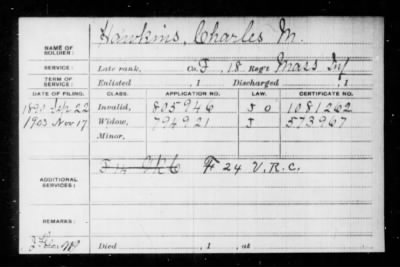 Hawkins, Charles M.
NAME OF SOLDIER:
SERVICE: Late rank, Co. F, 18 Reg't Mass Inf
TERM OF SERVICE: Enlisted , 1 Discharged , 1
DATE OF FILING. CLASS. APPLICATION NO. LAW. CERTIFICATE NO.
22 Invalid, 805946 J O 1081262
1903 Nov 17 Widow, 794921 J 573967
Minor,
ADDITIONAL SERVICES: F 24 V.R.C.
REMARKS:
Died , 1 , at